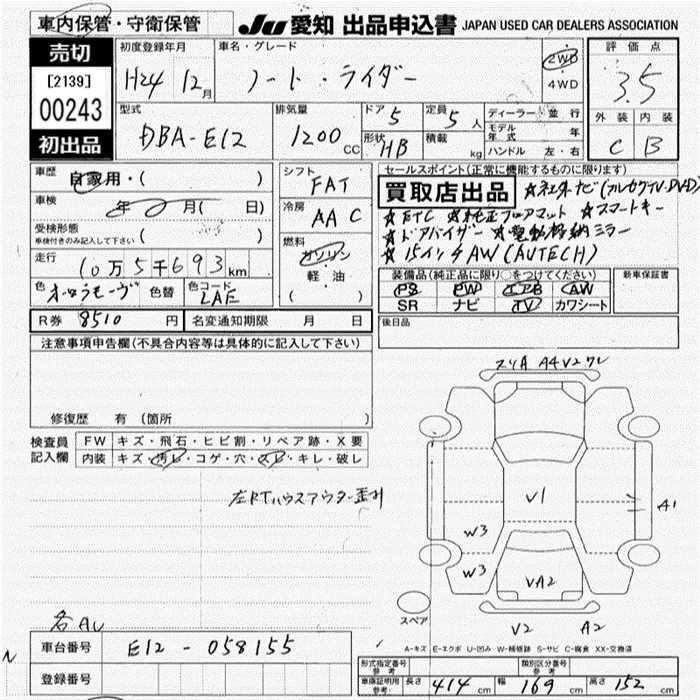 車内保管・守衛保管
JU 愛知 出品申込書 JAPAN USED CAR DEALERS ASSOCIATION
売切
[2139]
00243
初出品
初度登録年月
H24 12月
車名・グレード
ノート・ライダー
2WD
4WD
評価点
3.5
外装 内装
C B
型式
DBA-E12
排気量
1200 CC
ドア 5
定員 5人
形状 HB
積載 kg
ディーラー 並行
モデル年式 年
ハンドル 左・右
車歴
自家用・( )
車検
年 月( 日)
受検形態
車検付きのみ記入して下さい ( )
走行
10万5千693km
色
色替
色コード
LAE
シフト
FAT
冷房
AAC
燃料
ガソリン
軽・油
( )
セールスポイント(正常に機能するものに限ります)
買取店出品
☆ETC ☆純正フロアマット ☆スマートキー
☆ドアバイザー ☆電動格納ミラー
☆15インチAW(AUTECH)
装備品(純正品に限り○をつけてください)
PS PW エアB AW
SR ナビ TV カワシート
新車保証書
R券 8510円
名変通知期限 月 日
後日品
注意事項申告欄(不具合内容等は具体的に記入して下さい)
修復歴 有 (箇所 )
検査員記入欄
FW キズ・飛石・ヒビ割・リペア跡・X要
内装 キズ・汚れ・コゲ・穴・スレ・キレ・破レ
スリA A4V2ワレ
V1
A1
W3
W3
VA2
スペア
V2 A2
A-キズ E-エクボ U-凹み W-補修跡 S-サビ C-腐食 XX-交換済
車台番号 E12-058155
登録番号
形式指定番号 参考
類別区分番号 参考
車庫証明用 参考: 長さ 414cm 幅 169cm 高さ 152cm